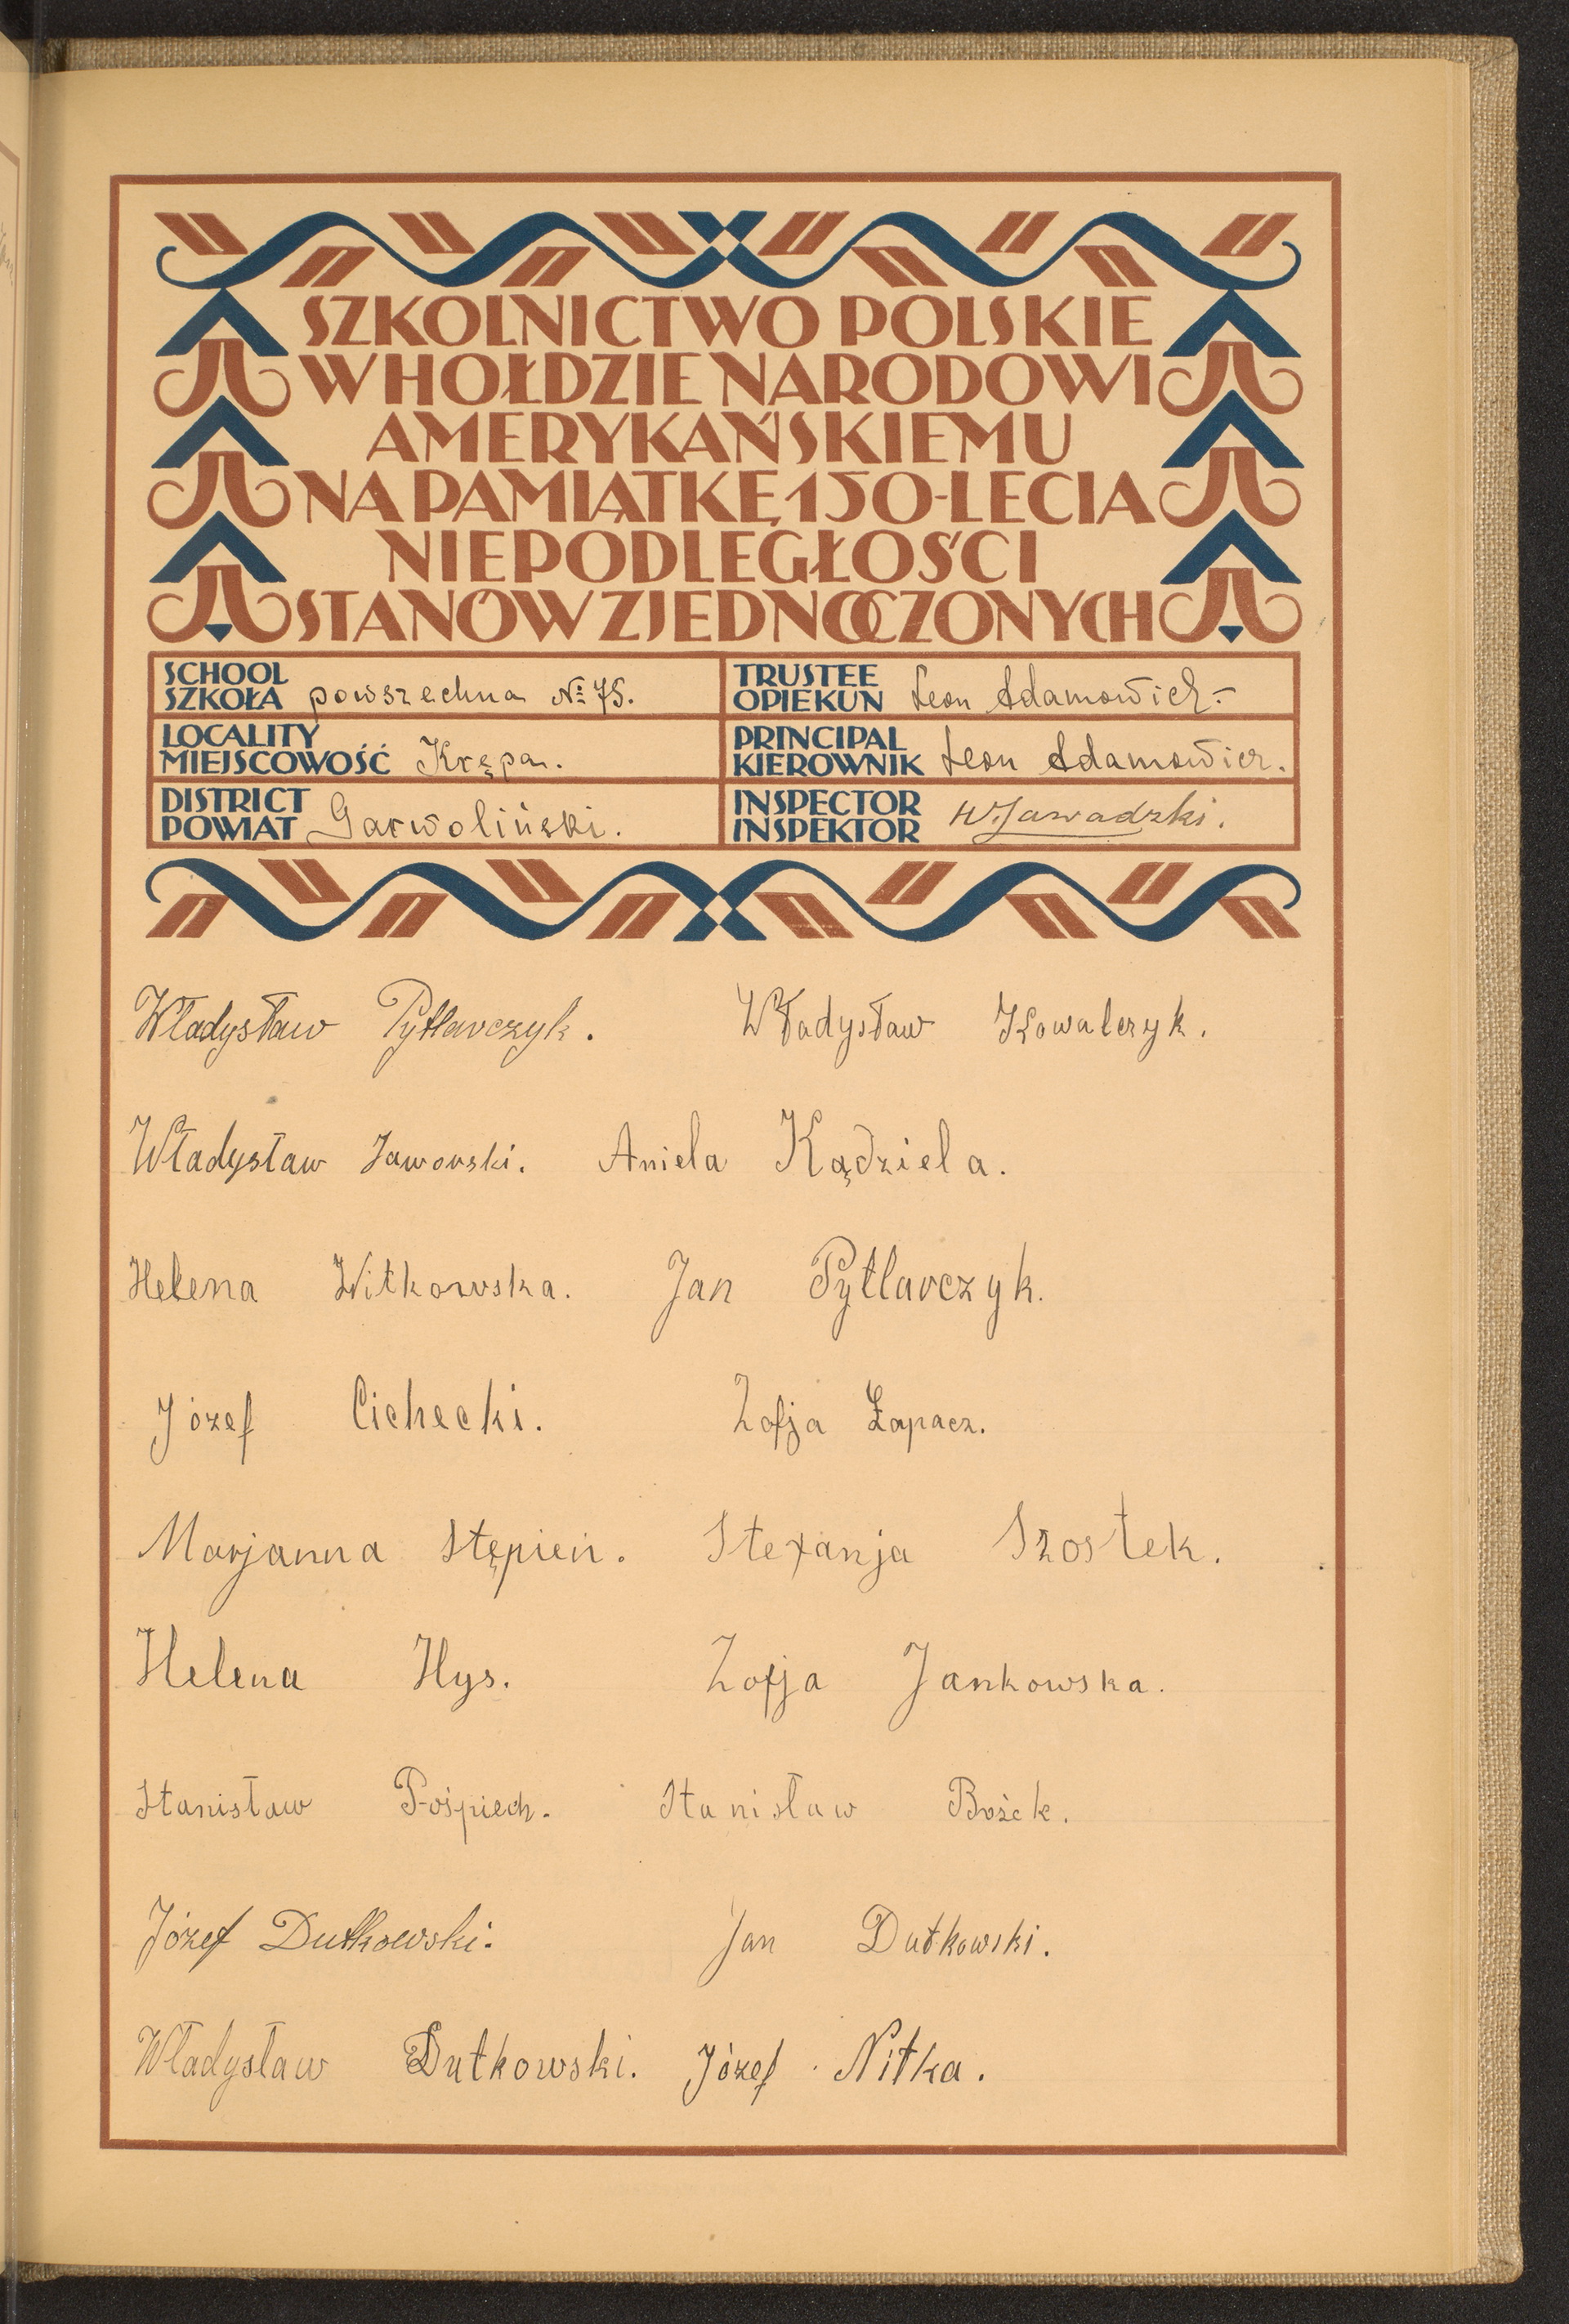 SZKOLNICTWO POLSKIE
W HOŁDZIE NARODOWI
AMERYKAŃSKIEMU
NA PAMIĄTKĘ 150-LECIA
NIEPODLEGŁOŚCI
STANÓW ZJEDNOCZONYCH
SCHOOL
SZKOŁA powszechna № 75.
TRUSTEE
OPIEKUN Leon Adamowicz.-
LOCALITY
MIEJSCOWOŚĆ Krępa.
PRINCIPAL
KIEROWNIK Leon Adamowicz.
DISTRICT
POWIAT Garwoliński.
INSPECTOR
INSPEKTOR W. Zawadzki.
Władysław Pytlarczyk. Władysław Kowalczyk.
Władysław Jaworski. Aniela Kądziela.
Helena Witkowska. Jan Pytlarczyk.
Józef Cichecki. Zofja Łapacz.
Marjanna Stępień. Stefanja Szostek.
Helena Hys. Zofja Jankowska.
Stanisław Pośpiech. Stanisław Bożek.
Józef Dutkowski. Jan Dutkowski.
Władysław Dutkowski. Józef Nitka.